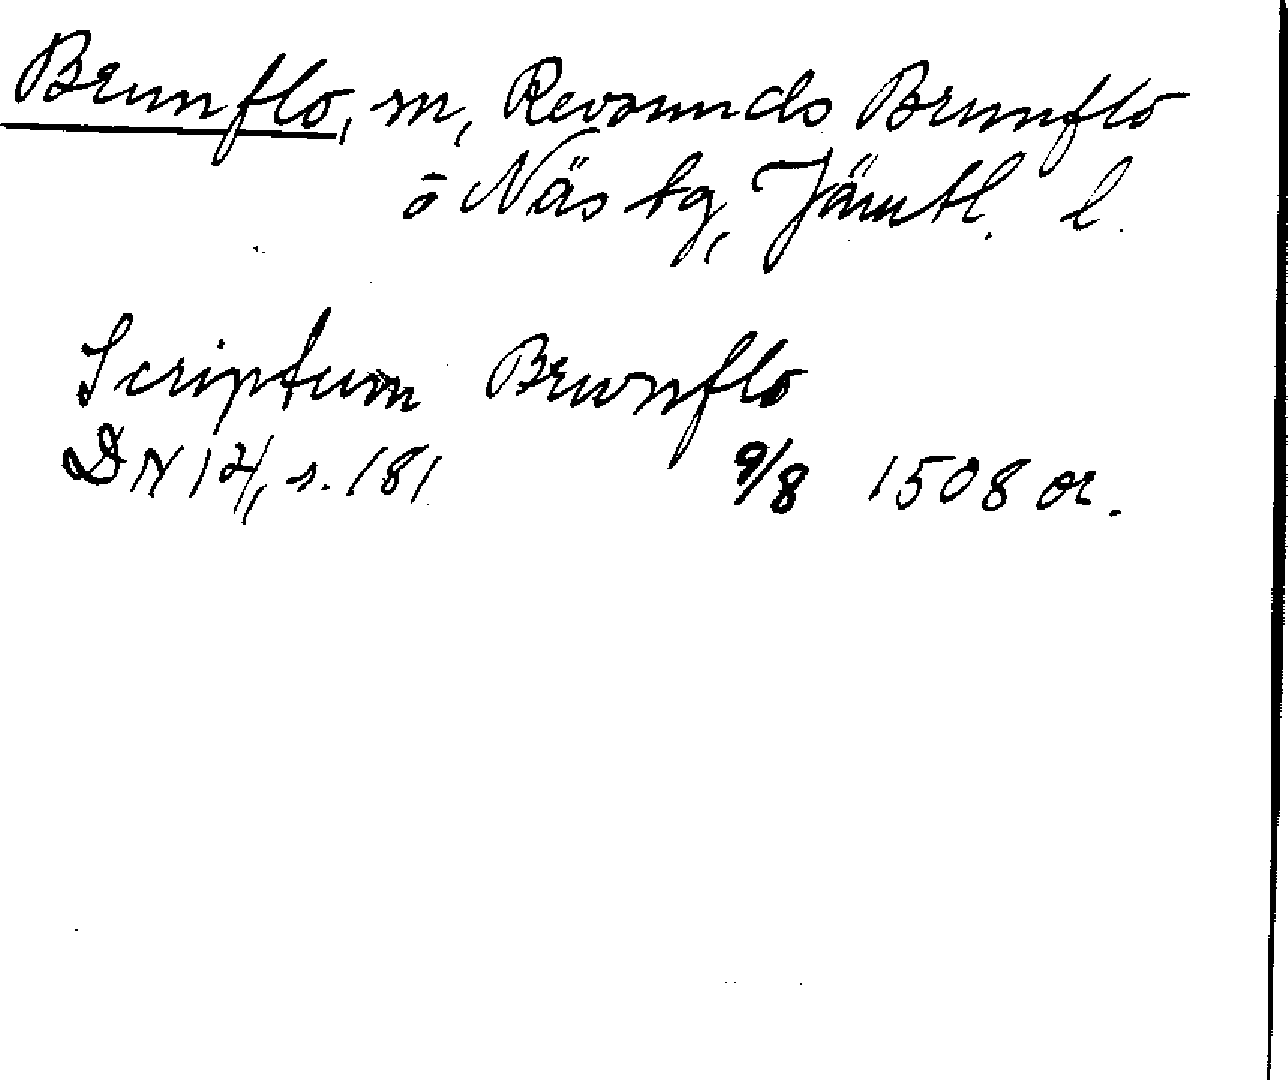 Brunflo, sn, Revsunds Brunflo
o Näs tg, Jämtl. l.
Scriptum Brwnflo
DN 14, s. 181 9/8 1508 or.